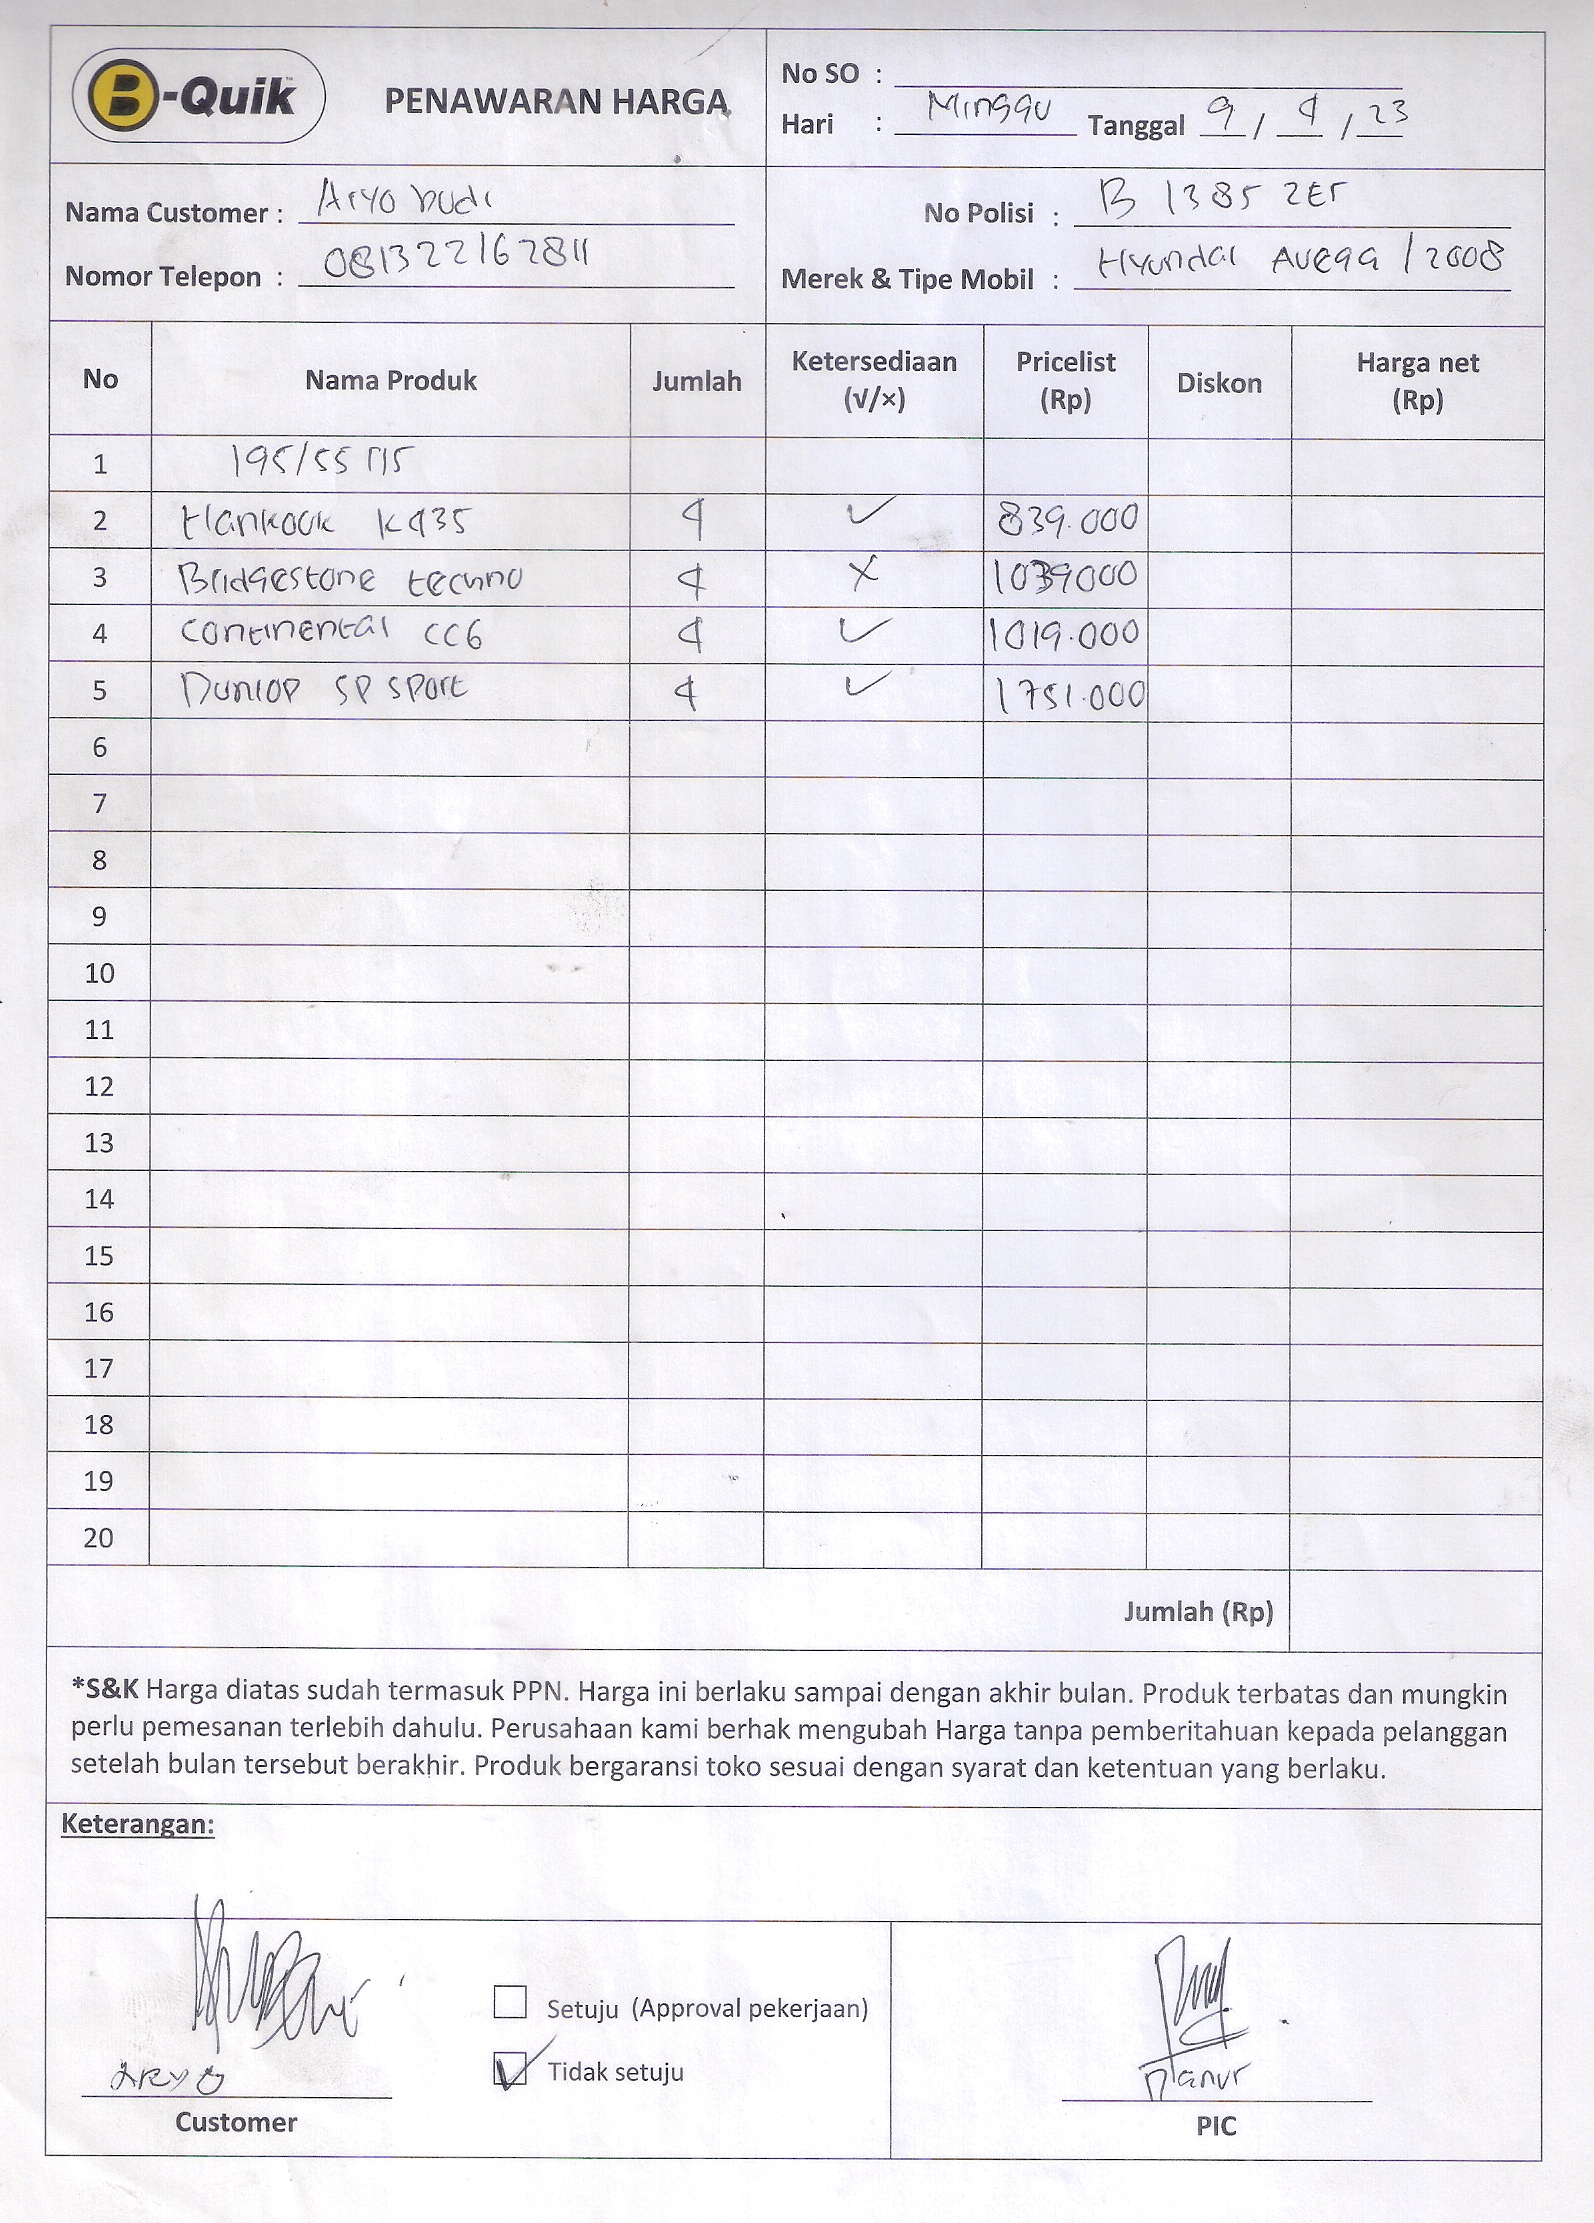 B-Quik™
PENAWARAN HARGA
No SO :
Hari : Minggu Tanggal 9 / 4 / 23
Nama Customer : Aryo budi
Nomor Telepon : 081322162811
No Polisi : B 1385 ZET
Merek & Tipe Mobil : Hyundai Avega / 2008
No Nama Produk Jumlah Ketersediaan (√/×) Pricelist (Rp) Diskon Harga net (Rp)
1 195/55 r15
2 Hankook K435 4 ✓ 839.000
3 Bridgestone techno 4 × 1039000
4 Continental CC6 4 ✓ 1019.000
5 Dunlop SP Sport 4 ✓ 1751.000
6
7
8
9
10
11
12
13
14
15
16
17
18
19
20
Jumlah (Rp)
*S&K Harga diatas sudah termasuk PPN. Harga ini berlaku sampai dengan akhir bulan. Produk terbatas dan mungkin
perlu pemesanan terlebih dahulu. Perusahaan kami berhak mengubah Harga tanpa pemberitahuan kepada pelanggan
setelah bulan tersebut berakhir. Produk bergaransi toko sesuai dengan syarat dan ketentuan yang berlaku.
Keterangan:
Setuju (Approval pekerjaan)
✓ Tidak setuju
Aryo
Customer
PIC